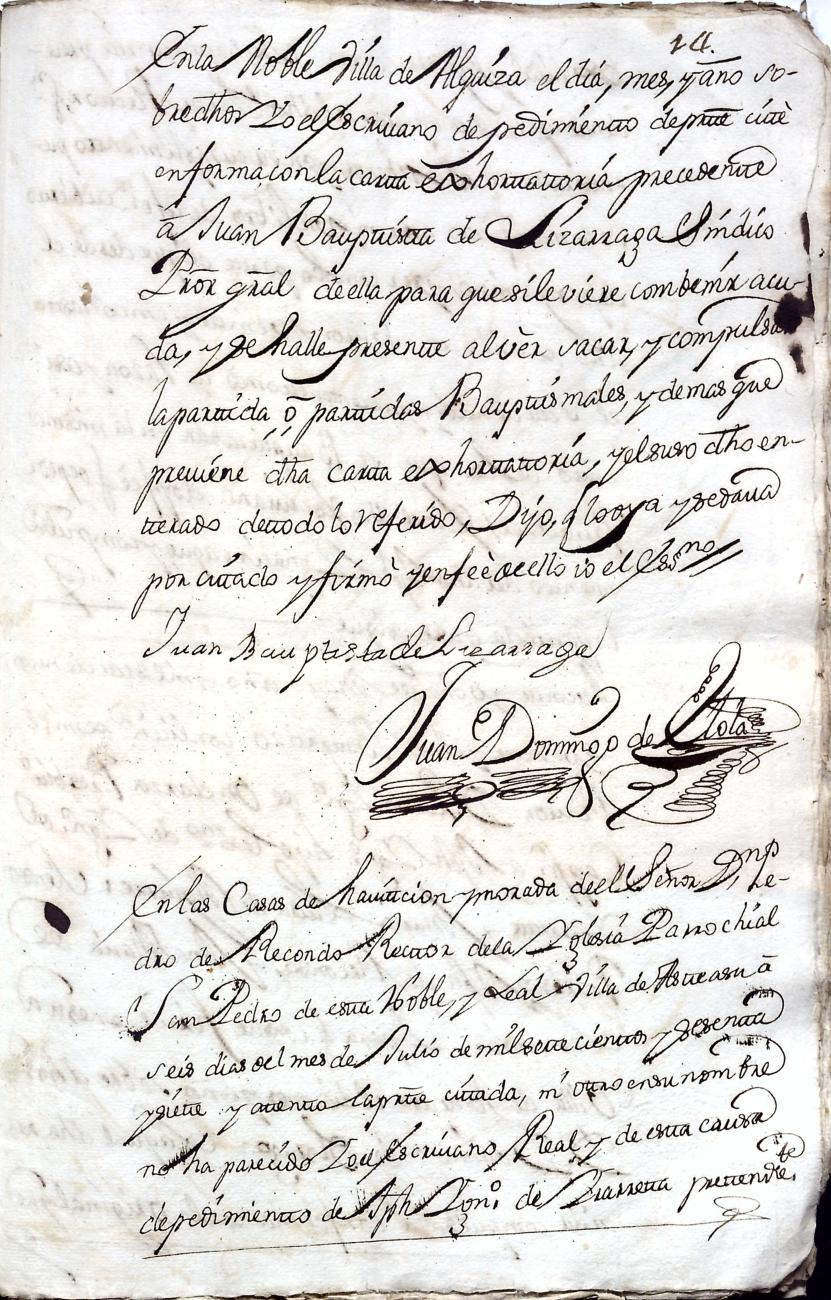 14.
En la Noble Villa de Alquiza el dia, mes, y año so-
bredhos Yo el Escriuano de pedimiento de prte cite
en forma, con la carta exhortattoria precedente
â Juan Bauptista de Lizarraga Síndico
Pror gral de ella para que si le viere combenir acu-
da, y se halle presente al vèr sacar, y compulsar
la partida ô partidas Bauptismales, y demas que
preuiene dha carta exhortattoria, y el suso dho en-
terado de ttodo lo referido, Dijo, q lo oya y se daua
por cittado y firmò y en feè de ello io el Essno
Juan Bauptista de Lizarraga
Juan Domingo de
En las Casas de hauitcion y morada de el Señor Dn Pe-
dro de Recondo Rector de la Yglesia Parrochial
San Pedro de esta Noble, y Leal Villa de Asteasu â
seis dias del mes de Julio de mil sette cientos y sesentta
y siete y attento la prte cittada, ni ottro en su nombre
no ha parecido Yo el Escriuano Real y de esta causa
de pedimiento de Jph Anto. de Yrarretta prettendte.